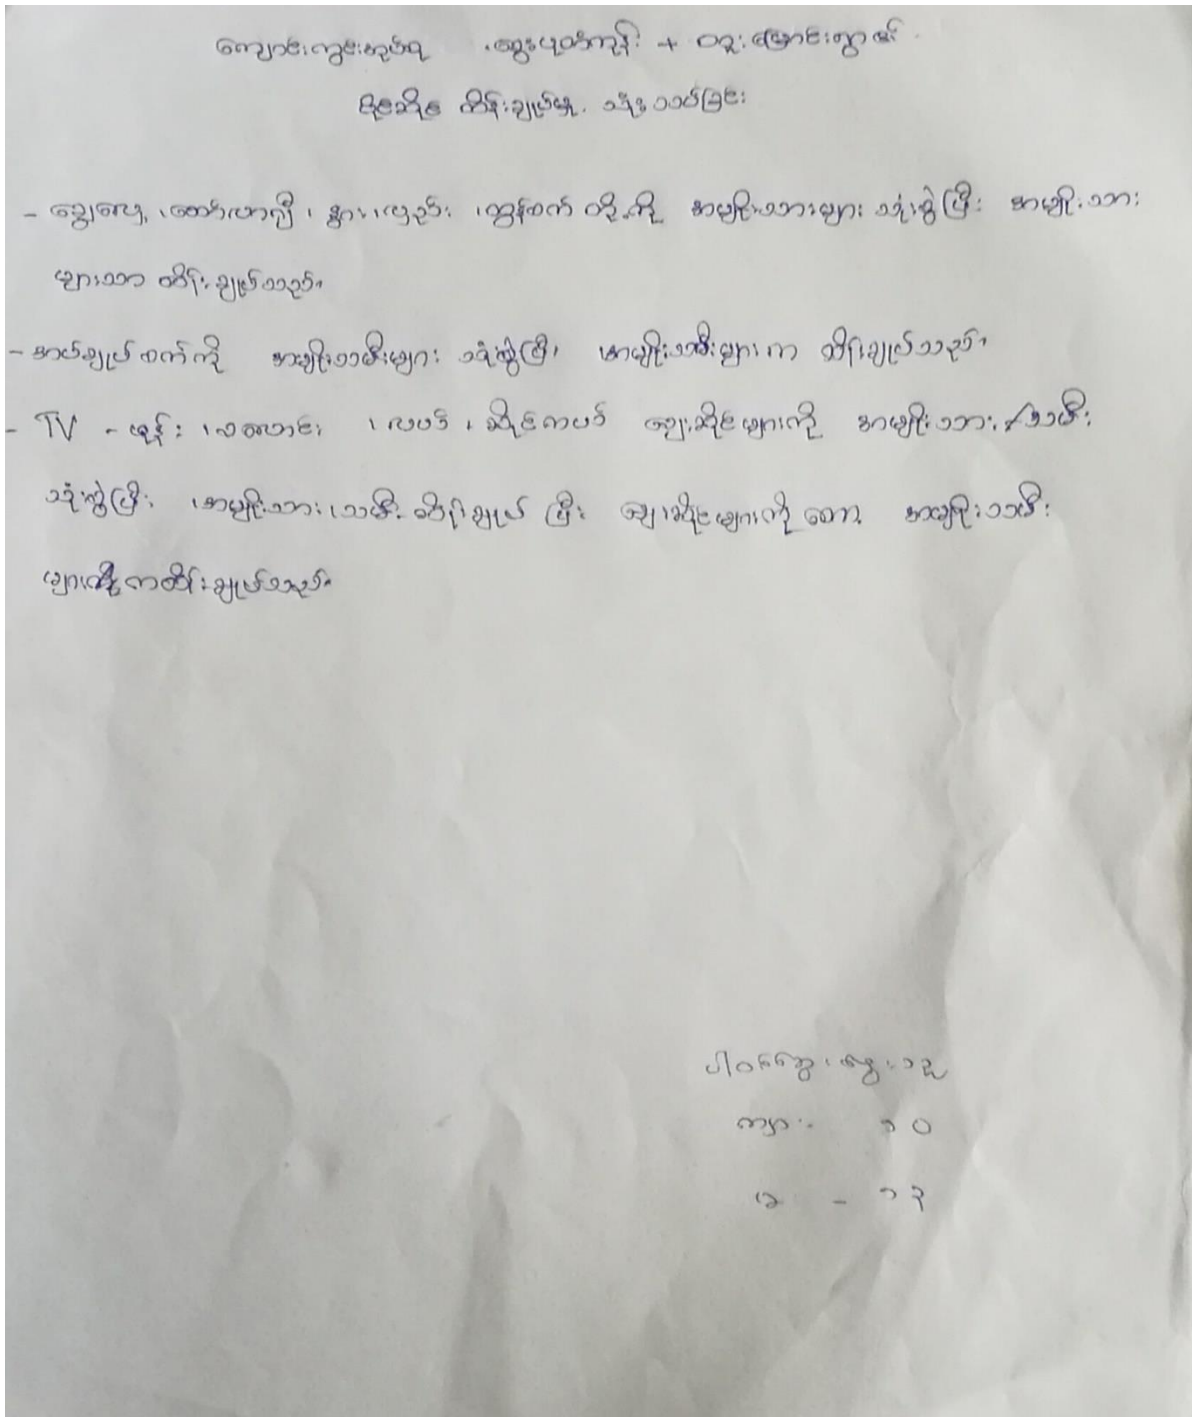 ကျောင်းကွင်းအုပ်စု ၊ဆွေးပုတ်ကုန်း + ဝဥ်းချောင်းရွာမ
ပိုင်ဆိုင် ထိန်းချုပ်မှု. သုံးသပ်ခြင်း
- ချွေလှေ့ ၊ထော်လာဂျီ ၊ နွား၊လှည်း ၊ထွန်စက် တို့ကို အမျိုးသားများ သုံးစွဲပြီး အမျိုးသား
များသာ ထိန်းချုပ်သည်။
- အပ်ချုပ်စက်ကို အမျိုးသမီးများ သုံးစွဲပြီး အမျိုးသမီးများက ထိန်းချုပ်သည်။
- TV - ဖုန်း ၊စလောင်း ၊ လယ် ၊ ဆိုင်ကယ် ဈေးဆိုင်များကို အမျိုးသား/သမီး
သုံးစွဲပြီး ၊အမျိုးသား၊သမီး ထိန်းချုပ် ပြီး ဈေးဆိုင်များကိုတော့ အမျိုးသမီး
များကထိန်းချုပ်သည်။
ပါဝင်ဆွေးနွေးသူ
ကျား - ၁၀
မ - ၁၃